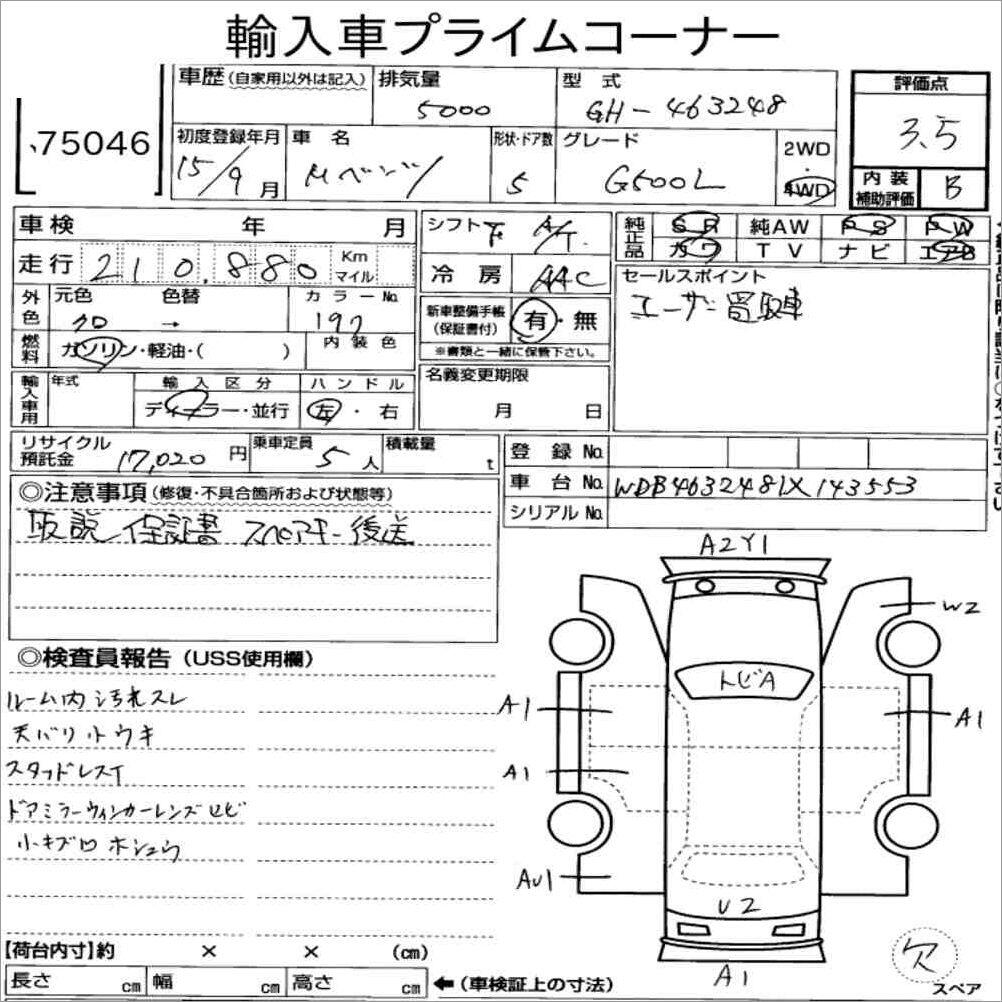 輸入車プライムコーナー
75046
車歴(自家用以外は記入) 排気量 5000 型式 GH-463248
初度登録年月 15/9月 車名 Mベンツ 形状・ドア数 5 グレード G500L 2WD・4WD
評価点 3.5
内装補助評価 B
車検 年 月
走行 210,880 Km マイル
外色 元色 クロ 色替 → カラーNo. 197
燃料 ガソリン・軽油・( ) 内装色
輸入車用 年式 輸入区分 ディーラー・並行 ハンドル 左・右
シフト F A/T
冷房 AAC
新車整備手帳(保証書付) 有・無
※書類と一緒に保管下さい。
名義変更期限 月 日
純正品 SR 純AW PS PW
カワ TV ナビ エアB
セールスポイント
ユーザー買取車
リサイクル預託金 17,020円 乗車定員 5人 積載量 t
登録No.
車台No. WDB4632481X143553
シリアルNo.
◎注意事項(修復・不具合箇所および状態等)
取説 保証書 スペアキー後送
◎検査員報告(USS使用欄)
ルーム内汚れスレ
天バリトウキ
スタッドレスT
ドアミラーウィンカーレンズヒビ
小キズロホシュウ
A2Y1
W2
トビA
A1
A1
A1
AU1
U2
A1
欠
スペア
【荷台内寸】約 × × (cm)
長さ cm 幅 cm 高さ cm ←(車検証上の寸法)